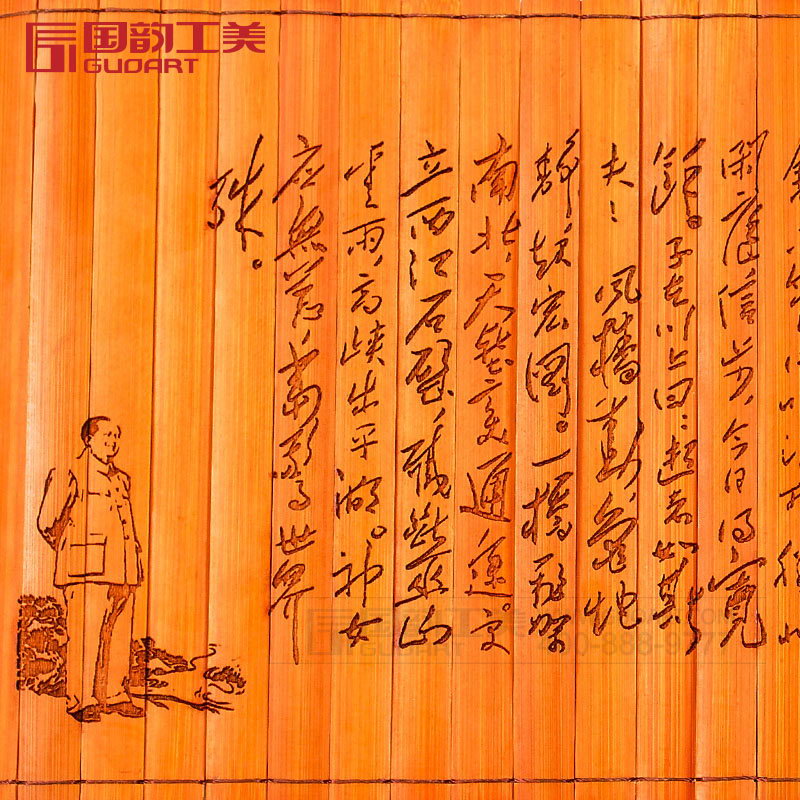 国韵工美
GUOART
闲庭信步,今日得寬
餘。子在川上曰:逝者如斯
夫!風樯動,龟蛇
静,起宏图。一橋飛架
南北,天堑变通途。更
立西江石壁,截断巫山
雲雨,高峡出平湖。神女
应無恙,当驚世界
殊。
国韵工美
GUOART